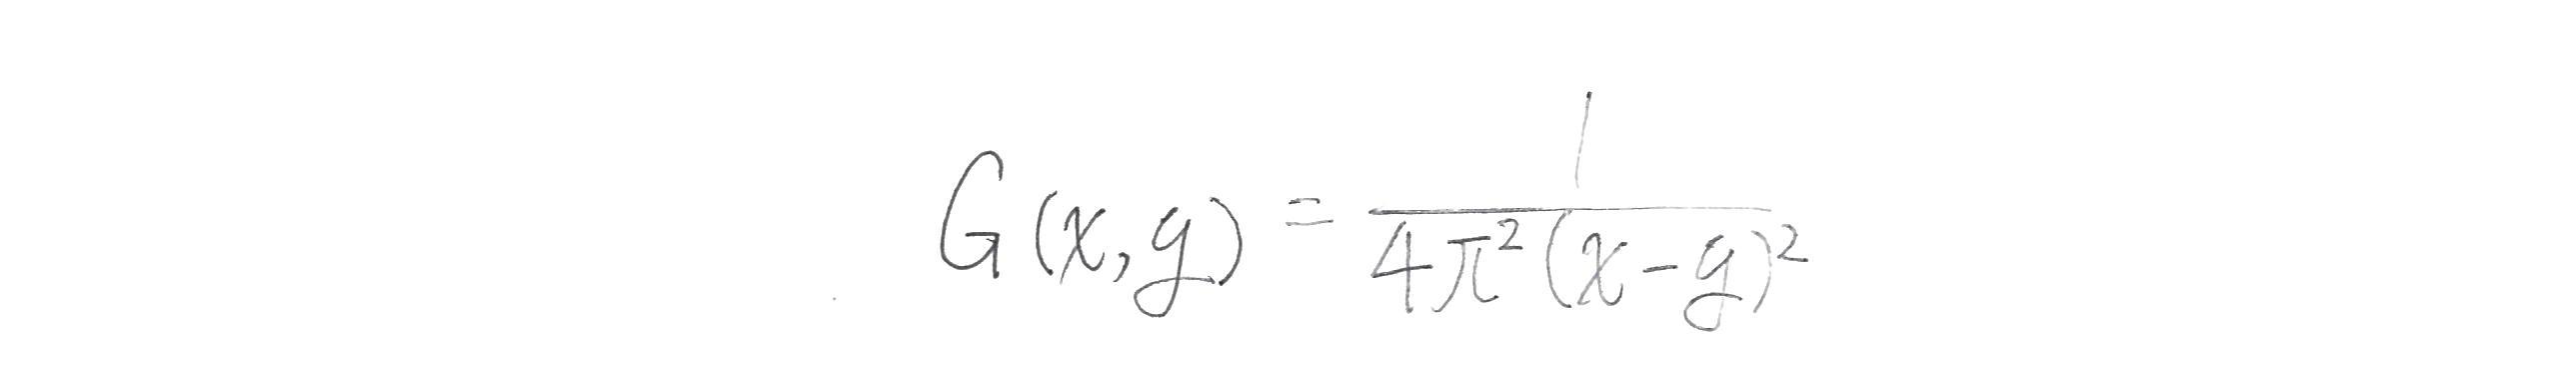 G(x,y) = \frac{1}{4\pi^2(x-y)^2}